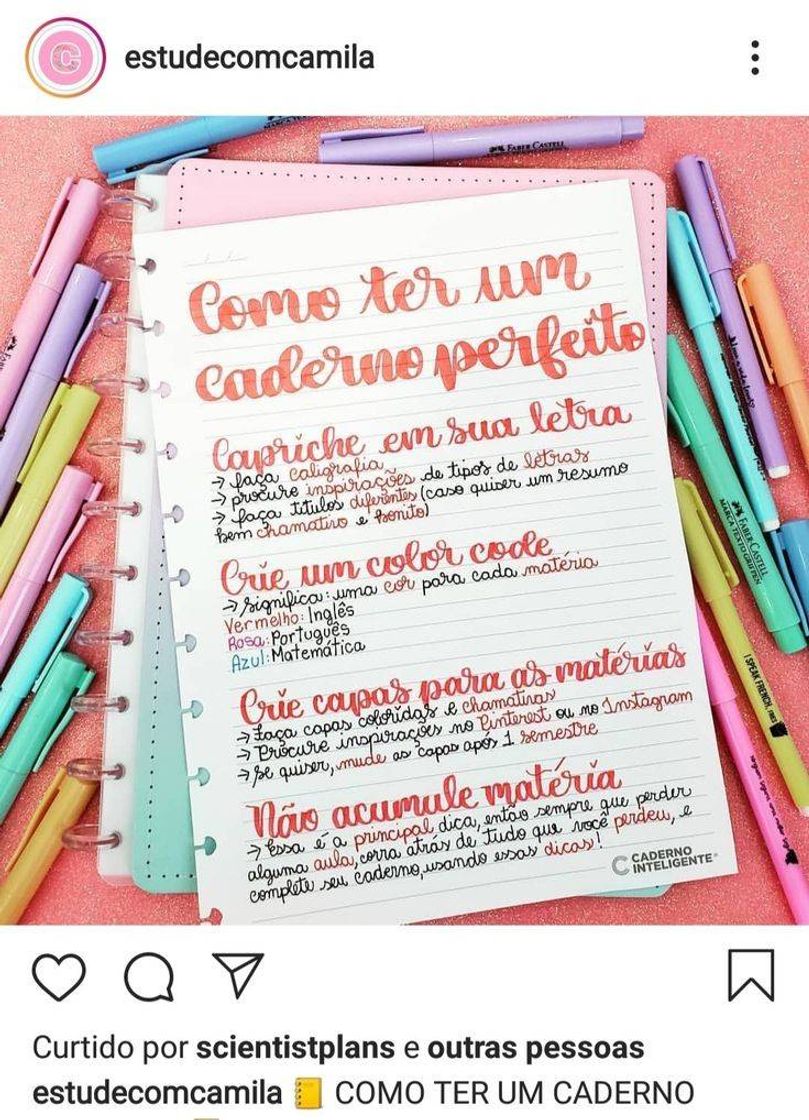 estudecomcamila
FABER CASTELL
Como ter um
caderno perfeito
Capriche em sua letra
→ faça caligrafia
→ procure inspirações de tipos de letras
→ faça títulos diferentes (caso quiser um resumo
bem chamativo e bonito)
Crie um color code
→ Significa: uma cor para cada matéria
Vermelho: Inglês
Rosa: Português
Azul: Matemática
Crie capas para as matérias
→ Faça capas coloridas e chamativas
→ Procure inspirações no Pinterest ou no Instagram
→ Se quiser, mude as capas após 1 semestre
Não acumule matéria
→ Essa é a principal dica, então sempre que perder
alguma aula, corra atrás de tudo que você perdeu, e
complete seu caderno, usando essas dicas!
CADERNO
INTELIGENTE
FABER-CASTELL
MARCA TEXTO GRIFPEN
I SPEAK FRENCH,
Curtido por scientistplans e outras pessoas
estudecomcamila 📒 COMO TER UM CADERNO